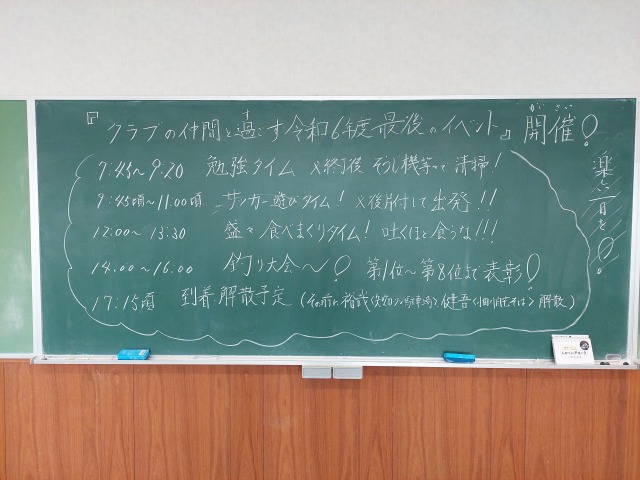 『クラブの仲間と過ごす令和6年度最後のイベント』開催!
がさい
楽しい一日を!
7:45~9:20 勉強タイム ×終了後 そうじ機等って清掃!
9:45頃~11:00頃 サッカー遊びタイム! ×後片付して出発!!
12:00~13:30 盛々食べまくりタイム! 吐くほど食うな!!!
14:00~16:00 釣り大会~! 第1位~第8位まで表彰!
17:15頃 到着・解散予定 (その前に 裕武 健吾 解散)